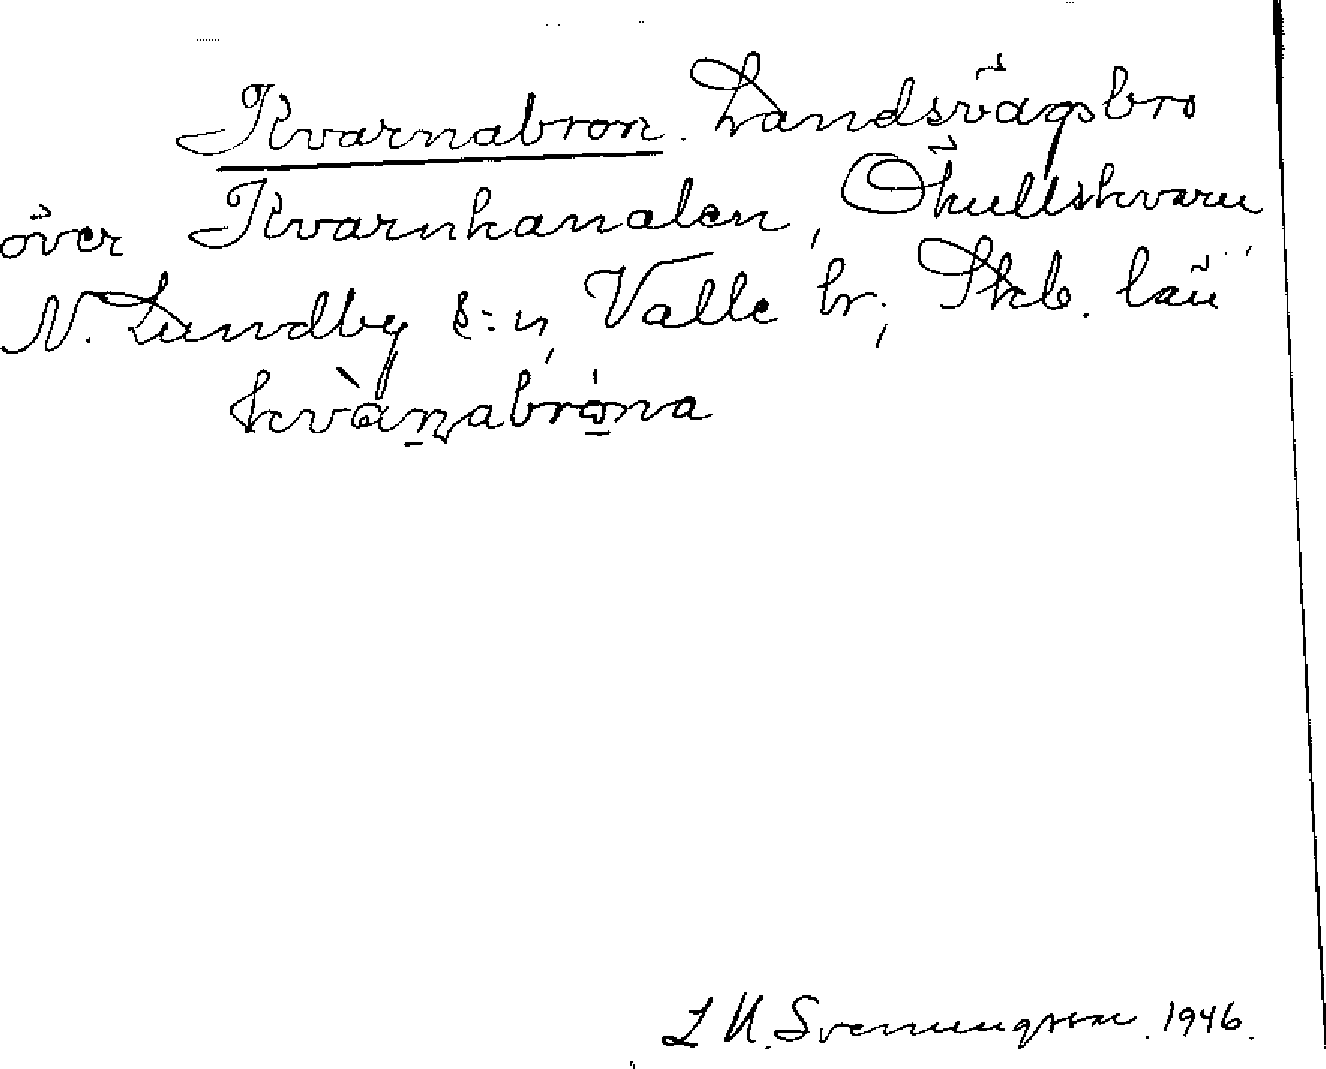 Kvarnabron. Landsvägsbro
över Kvarnkanalen, Ökullskvarn
N. Lundby s:n, Valle hr; Skb. län
kvànabróna
L N. Svenungsson. 1946.